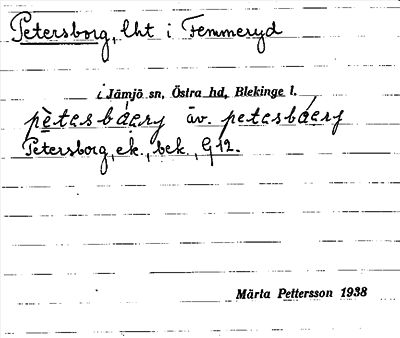 Petersborg, lht i Femmeryd
i Jämjö sn, Östra hd, Blekinge l.
pètesbáery äv. petesbáery
Petersborg, ek., bek., G 12.
Märta Pettersson 1938